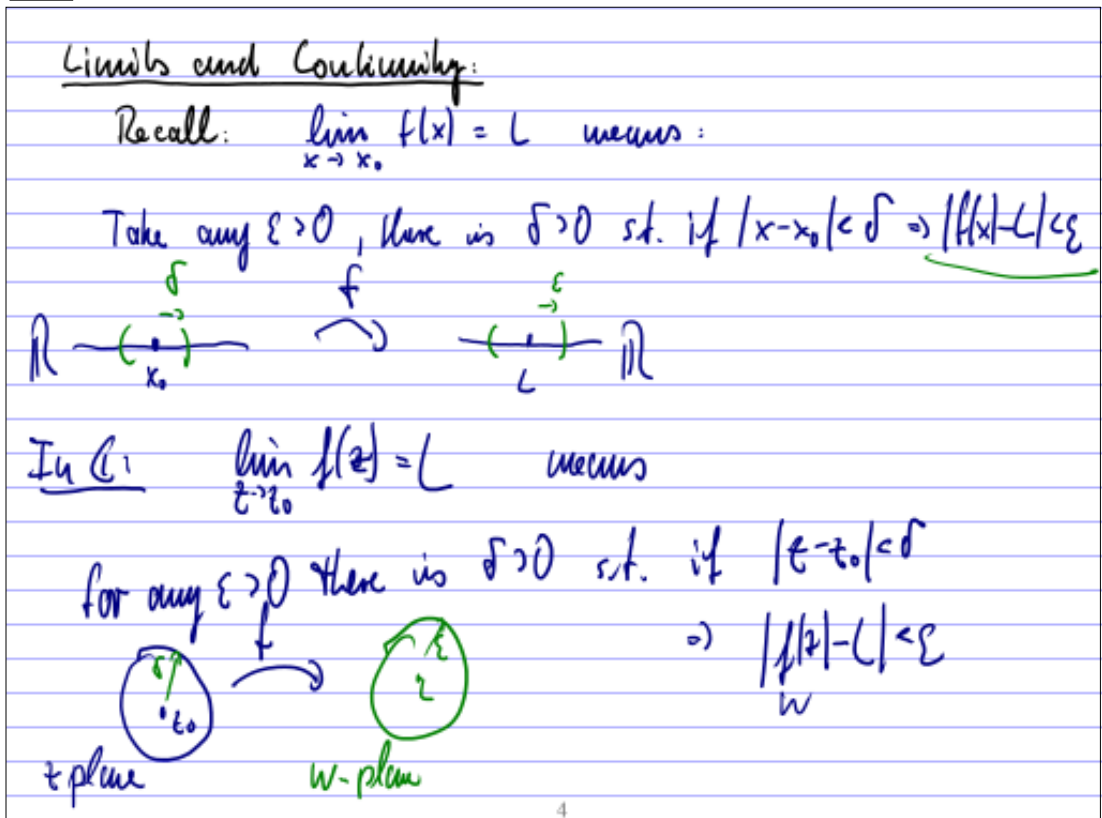 Limits and Continuity:
Recall: lim f(x) = L means:
x → x₀
Take any ε > 0, there is δ > 0 s.t. if |x-x₀| < δ ⇒ |f(x)-L| < ε
δ f ε
ℝ ( ) ( ) ℝ
x₀ L
In ℂ: lim f(z) = L means
z→z₀
for any ε > 0 there is δ > 0 s.t. if |z-z₀| < δ
f ⇒ |f(z)-L| < ε
δ ε
z₀ L w
z plane w-plane
4